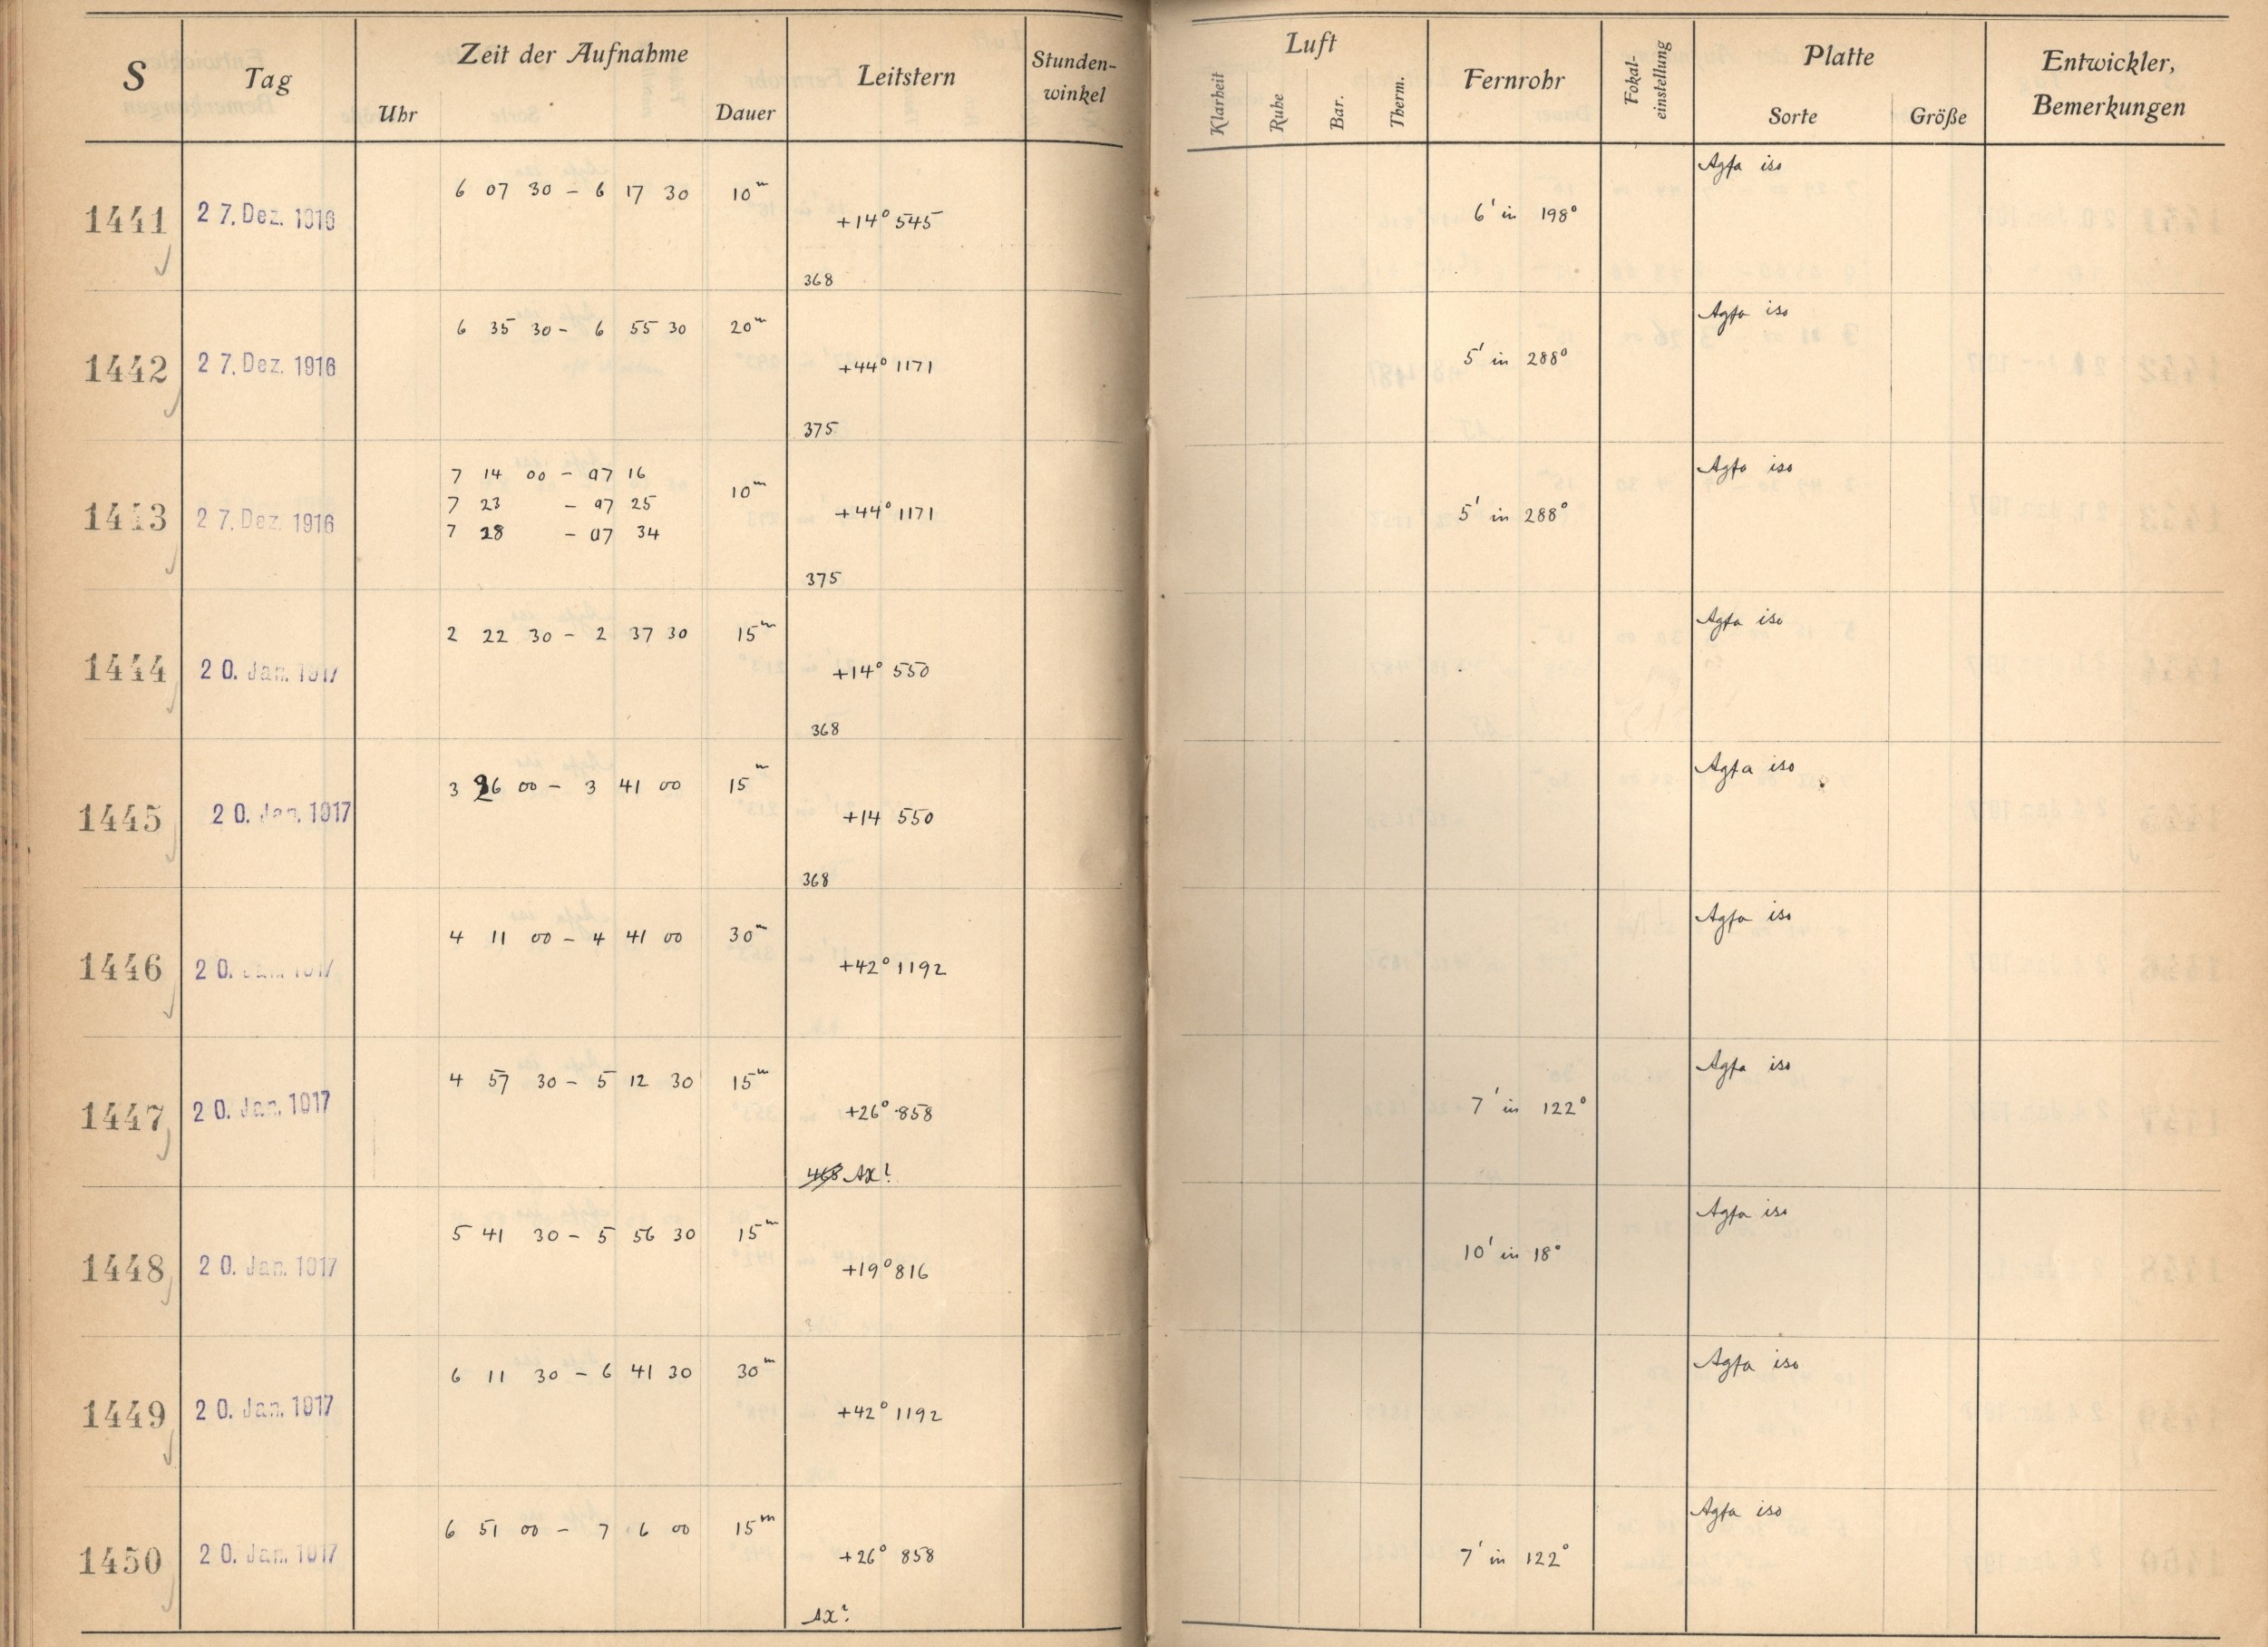 S Tag Zeit der Aufnahme Leitstern Stunden-winkel Luft Fernrohr Fokal-einstellung Platte Entwickler, Bemerkungen
Uhr Dauer Klarheit Ruhe Bar. Therm. Sorte Größe
Agfa iso
6 07 30 – 6 17 30 10m
1441 27. Dez. 1916 +14° 545 6' in 198°
368
Agfa iso
6 35 30 – 6 55 30 20m
1442 27. Dez. 1916 +44° 1171 5' in 288°
375
7 14 00 – 07 16 Agfa iso
7 23 – 07 25 10m
1443 27. Dez. 1916 +44° 1171 5' in 288°
7 28 – 07 34
375
Agfa iso
2 22 30 – 2 37 30 15m
1444 20. Jan. 1917 +14° 550
368
Agfa iso
3 26 00 – 3 41 00 15m
1445 20. Jan. 1917 +14 550
368
Agfa iso
4 11 00 – 4 41 00 30m
1446 20. Jan. 1917 +42° 1192
Agfa iso
4 57 30 – 5 12 30 15m
1447 20. Jan. 1917 +26° 858 7' in 122°
468 AX?
Agfa iso
5 41 30 – 5 56 30 15m
1448 20. Jan. 1917 +19° 816 10' in 18°
Agfa iso
6 11 30 – 6 41 30 30m
1449 20. Jan. 1917 +42° 1192
Agfa iso
6 51 00 – 7 6 00 15m
1450 20. Jan. 1917 +26° 858 7' in 122°
AX?